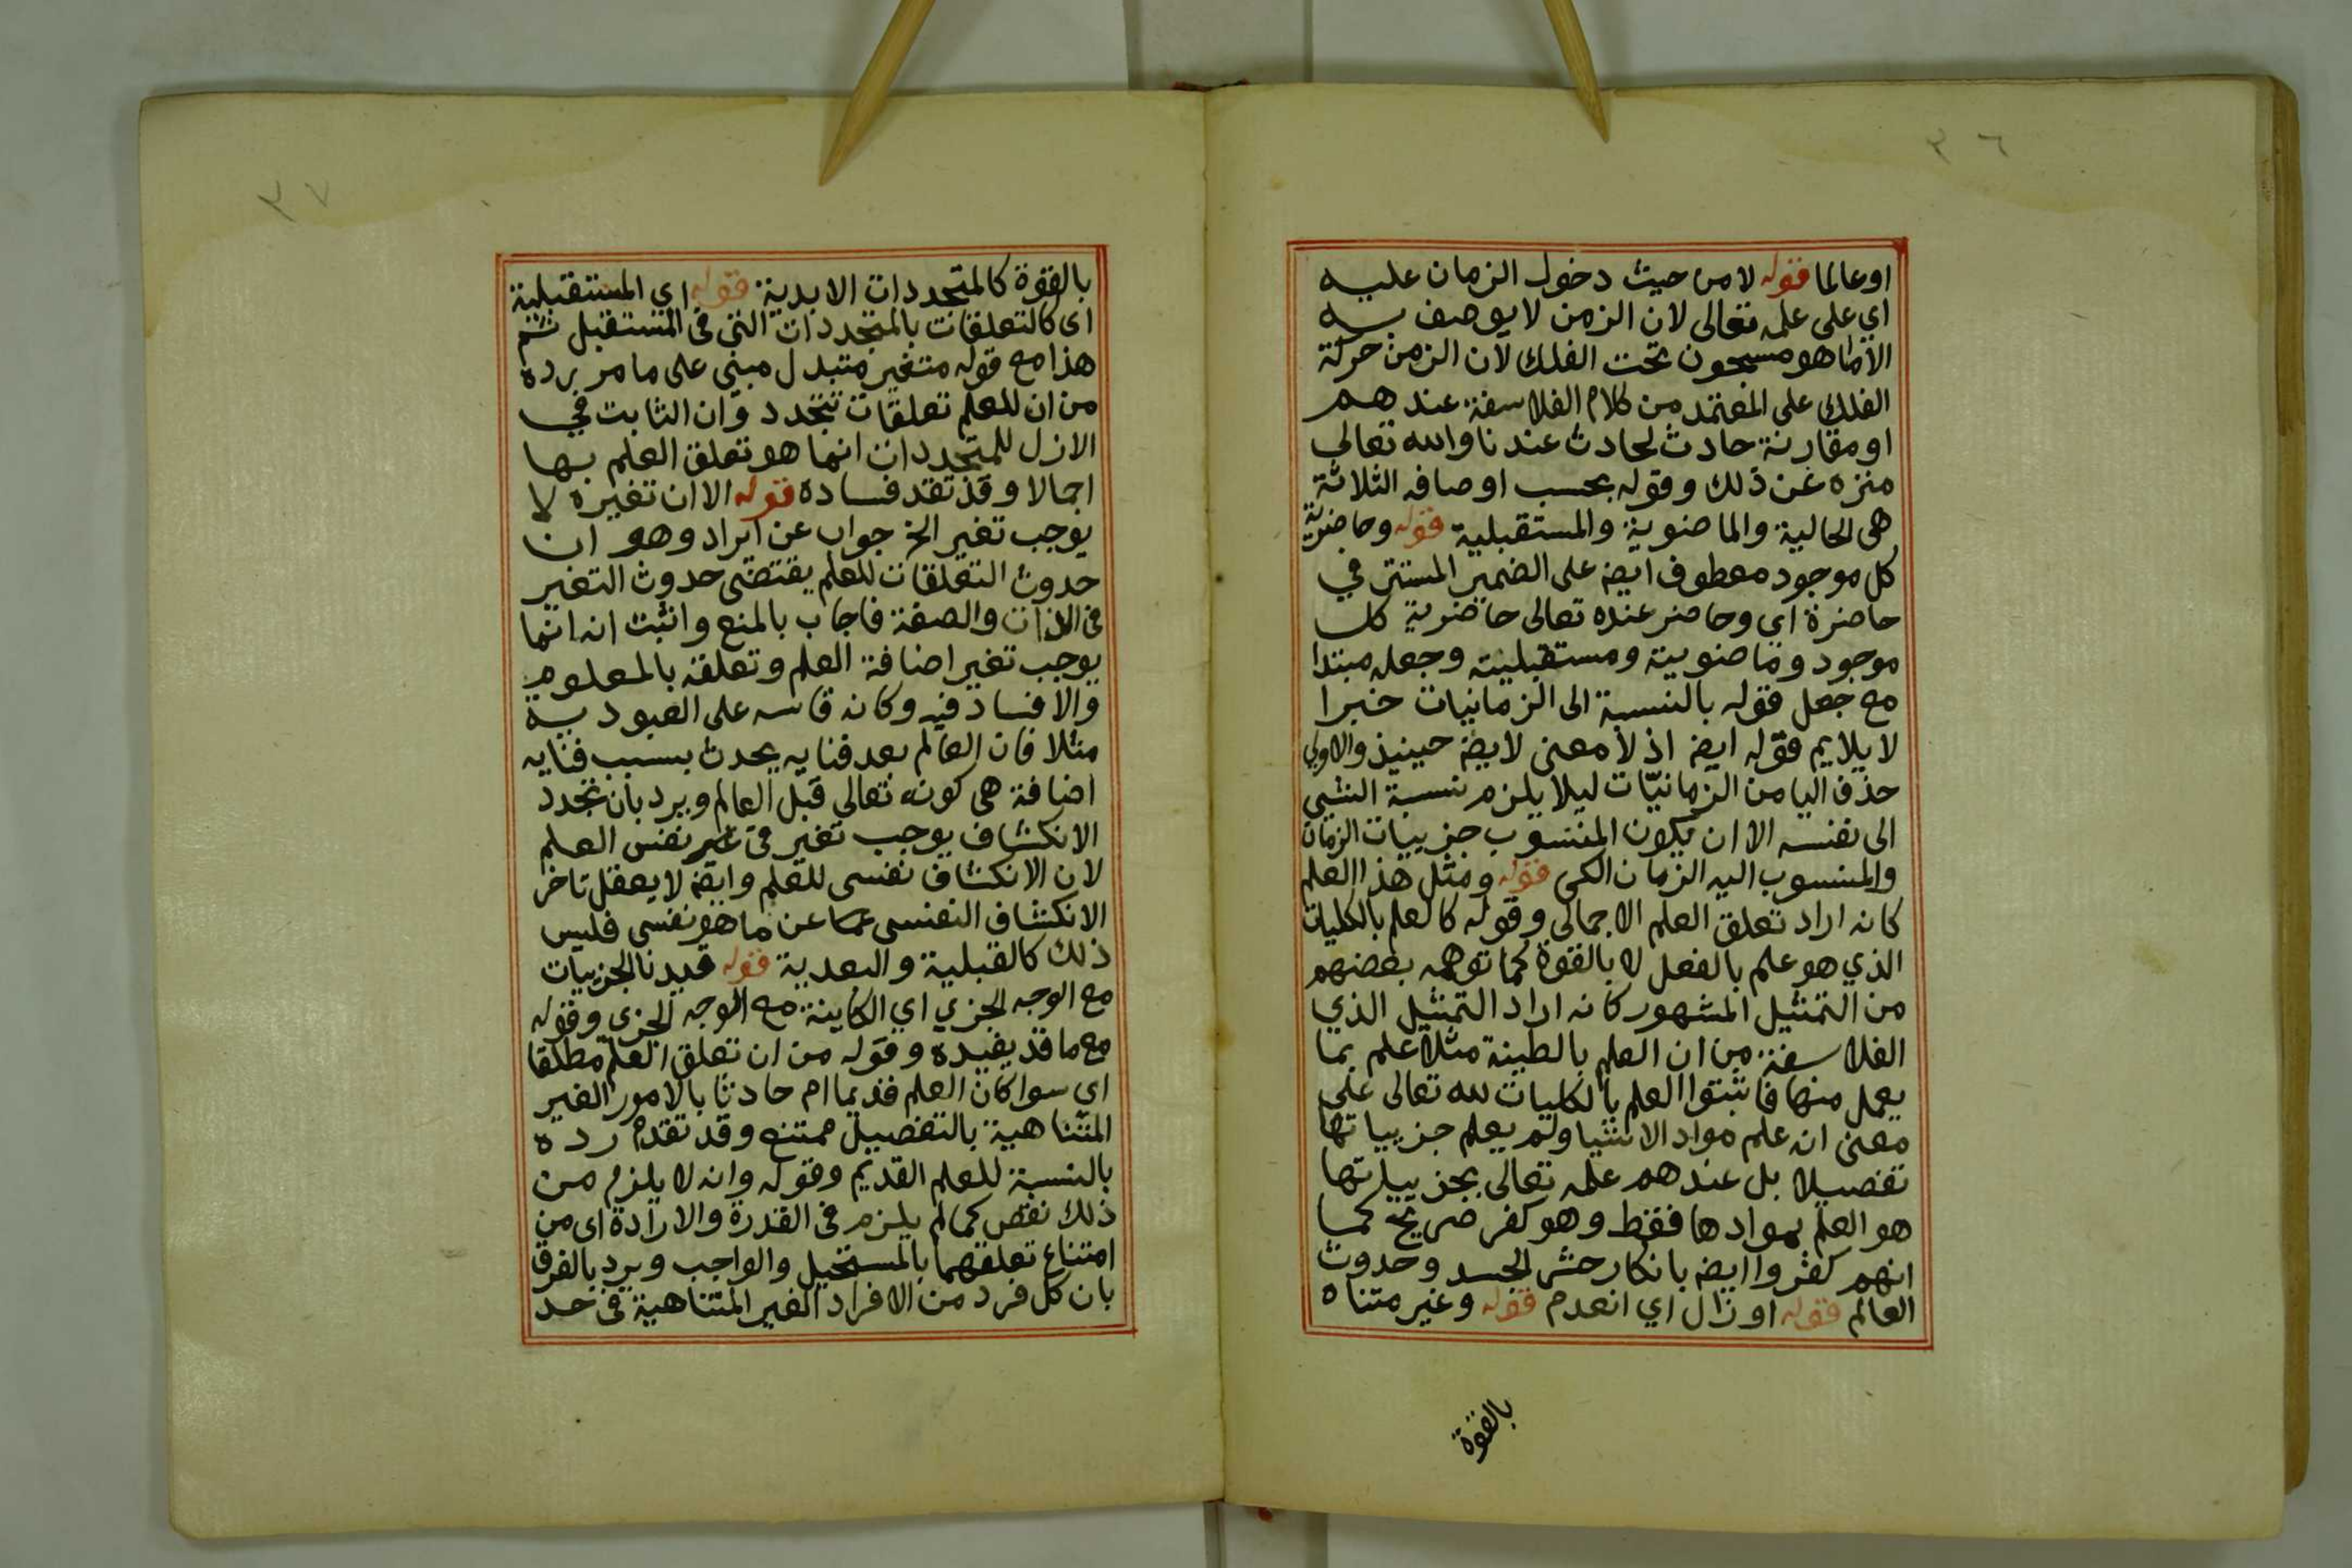 ٣٦
اوعالما قوله لا من حيث دخول الزمان عليه
اي على علمه تعالى لان الزمن لا يوصف به
الا ما هو مسجون تحت الفلك لان الزمن حركة
الفلك على المعتمد من كلام الفلاسفة عندهم
او مقارنة حادث لحادث عندنا والله تعالى
منزه عن ذلك وقوله بحسب اوصافه الثلاثة
هى الحالية والماضوية والمستقبلية قوله وحاضرية
كل موجود معطوف ايضه على الضمير المستتر في
حاضرة اي وحاضر عنده تعالى حاضرية كل
موجود وماضويته ومستقبليته وجعله مبتدا
مع جعل قوله بالنسبة الى الزمانيات خبرا
لا يلايم قوله ايضه اذ لا معنى لايضه حينيذ والاولى
حذف اليا من الزمانيّات ليلا يلزم نسبة الشي
الى نفسه الا ان يكون المنسوب جزييات الزمان
والمنسوب اليه الزمان الكلى قوله ومثل هذا العلم
كانه اراد تعلق العلم الاجمالى وقوله كالعلم بالكليات
الذي هو علم بالفعل لا بالقوة كما توهمه بعضهم
من التمثيل المشهور كانه اراد التمثيل الذي
الفلاسفة من ان العلم بالطينة مثلا علم بما
يعمل منها فاثبتوا العلم بالكليات لله تعالى على
معنى انه علم مواد الاشيا ولم يعلم جزيياتها
تفصيلا بل عندهم علمه تعالى بجزيياتها
هو العلم بموادها فقط وهو كفر صريح كما
انهم كفروا ايضه بانكار حشر الجسد وحدوث
العالم قوله او زال اي انعدم قوله وغير متناه
بالقوة
٣٧
بالقوة كالمتجددات الابدية قوله اي المستقبلية
اى كالتعلقات بالمتجددات التى فى المستقبل ثم
هذا مع قوله متغير متبدل مبنى على ما مر برده
من ان للعلم تعلقات تتجدد وان الثابت في
الازل للمتجددات انما هو تعلق العلم بها
اجمالا وقد تقد فساده قوله الا ان تغيره لا
يوجب تغير الخ جواب عن ايراد وهو ان
حدوث التعلقات للعلم يقتضى حدوث التغير
فى الذات والصفة فاجاب بالمنع واثبت انه انما
يوجب تغير اضافة العلم وتعلقه بالمعلوم
والا فساد فيه وكانه قاسه على العبودية
مثلا فان العالم بعد فنايه يحدث بسبب فنايه
اضافة هى كونه تعالى قبل العالم ويرد بان تجدد
الانكشاف يوجب تغير فى نفس العلم
لان الانكشاف نفسى للعلم وايضه لا يعقل تاخر
الانكشاف النفسى عن ما هو نفسى فليس
ذلك كالقبلية والبعدية قوله قيدنا الجزييات
مع الوجه الجزي اي الكاينة مع الوجه الجزي وقوله
مع ما قد يفيده وقوله من ان تعلق العلم مطلقا
اي سوا كان العلم قديما ام حادثا بالامور الغير
المتناهية بالتفصيل ممتنع وقد تقدم رده
بالنسبة للعلم القديم وقوله وانه لا يلزم من
ذلك نقص كما لم يلزم فى القدرة والارادة اى من
امتناع تعلقهما بالمستحيل والواجب ويرد بالفرق
بان كل فرد من الافراد الغير المتناهية فى حد